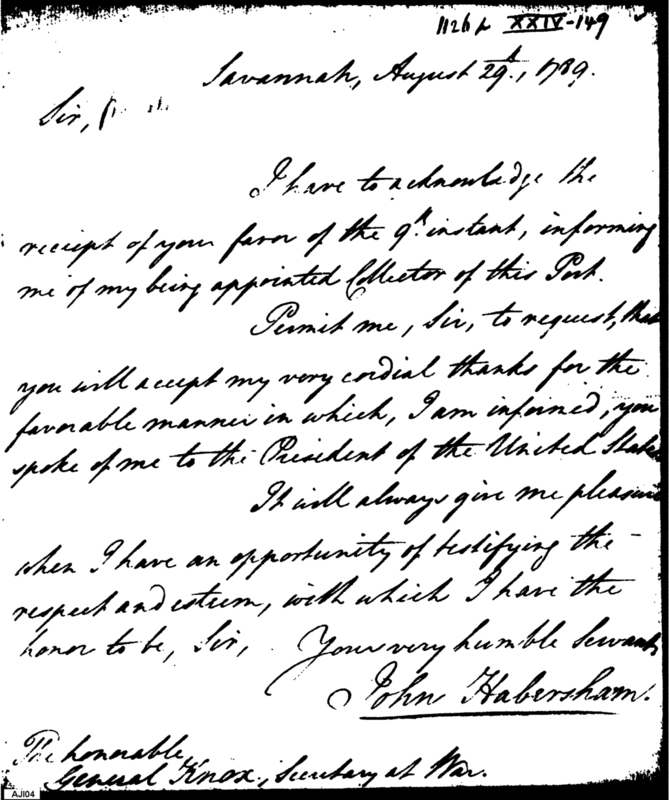 XXIV-149
Savannah, August 29th., 1789.
Sir,
I have to acknowledge the
receipt of your favor of the 9th. instant, informing
me of my being appointed Collector of this Port.
Permit me, Sir, to request, that
you will accept my very cordial thanks for the
favorable manner in which, I am informed, you
spoke of me to the President of the United States
It will always give me pleasure
when I have an opportunity of testifying the
respect and esteem, with which I have the
honor to be, Sir, Your very humble Servant,
John Habersham.
The honorable
General Knox, Secretary at War.
AJI04